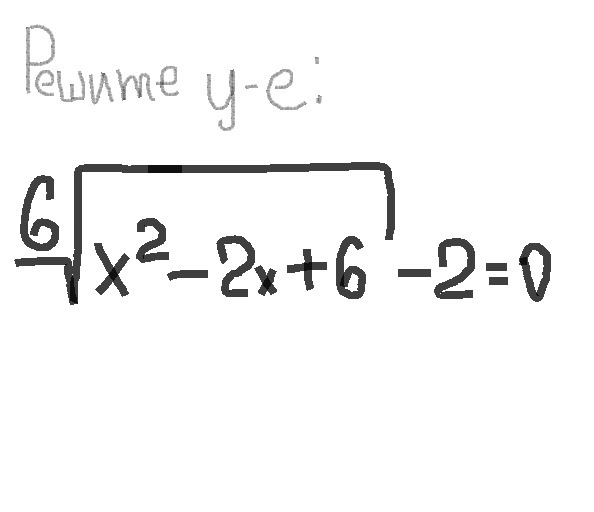 Решите у-е:
⁶√(x² - 2x + 6) - 2 = 0